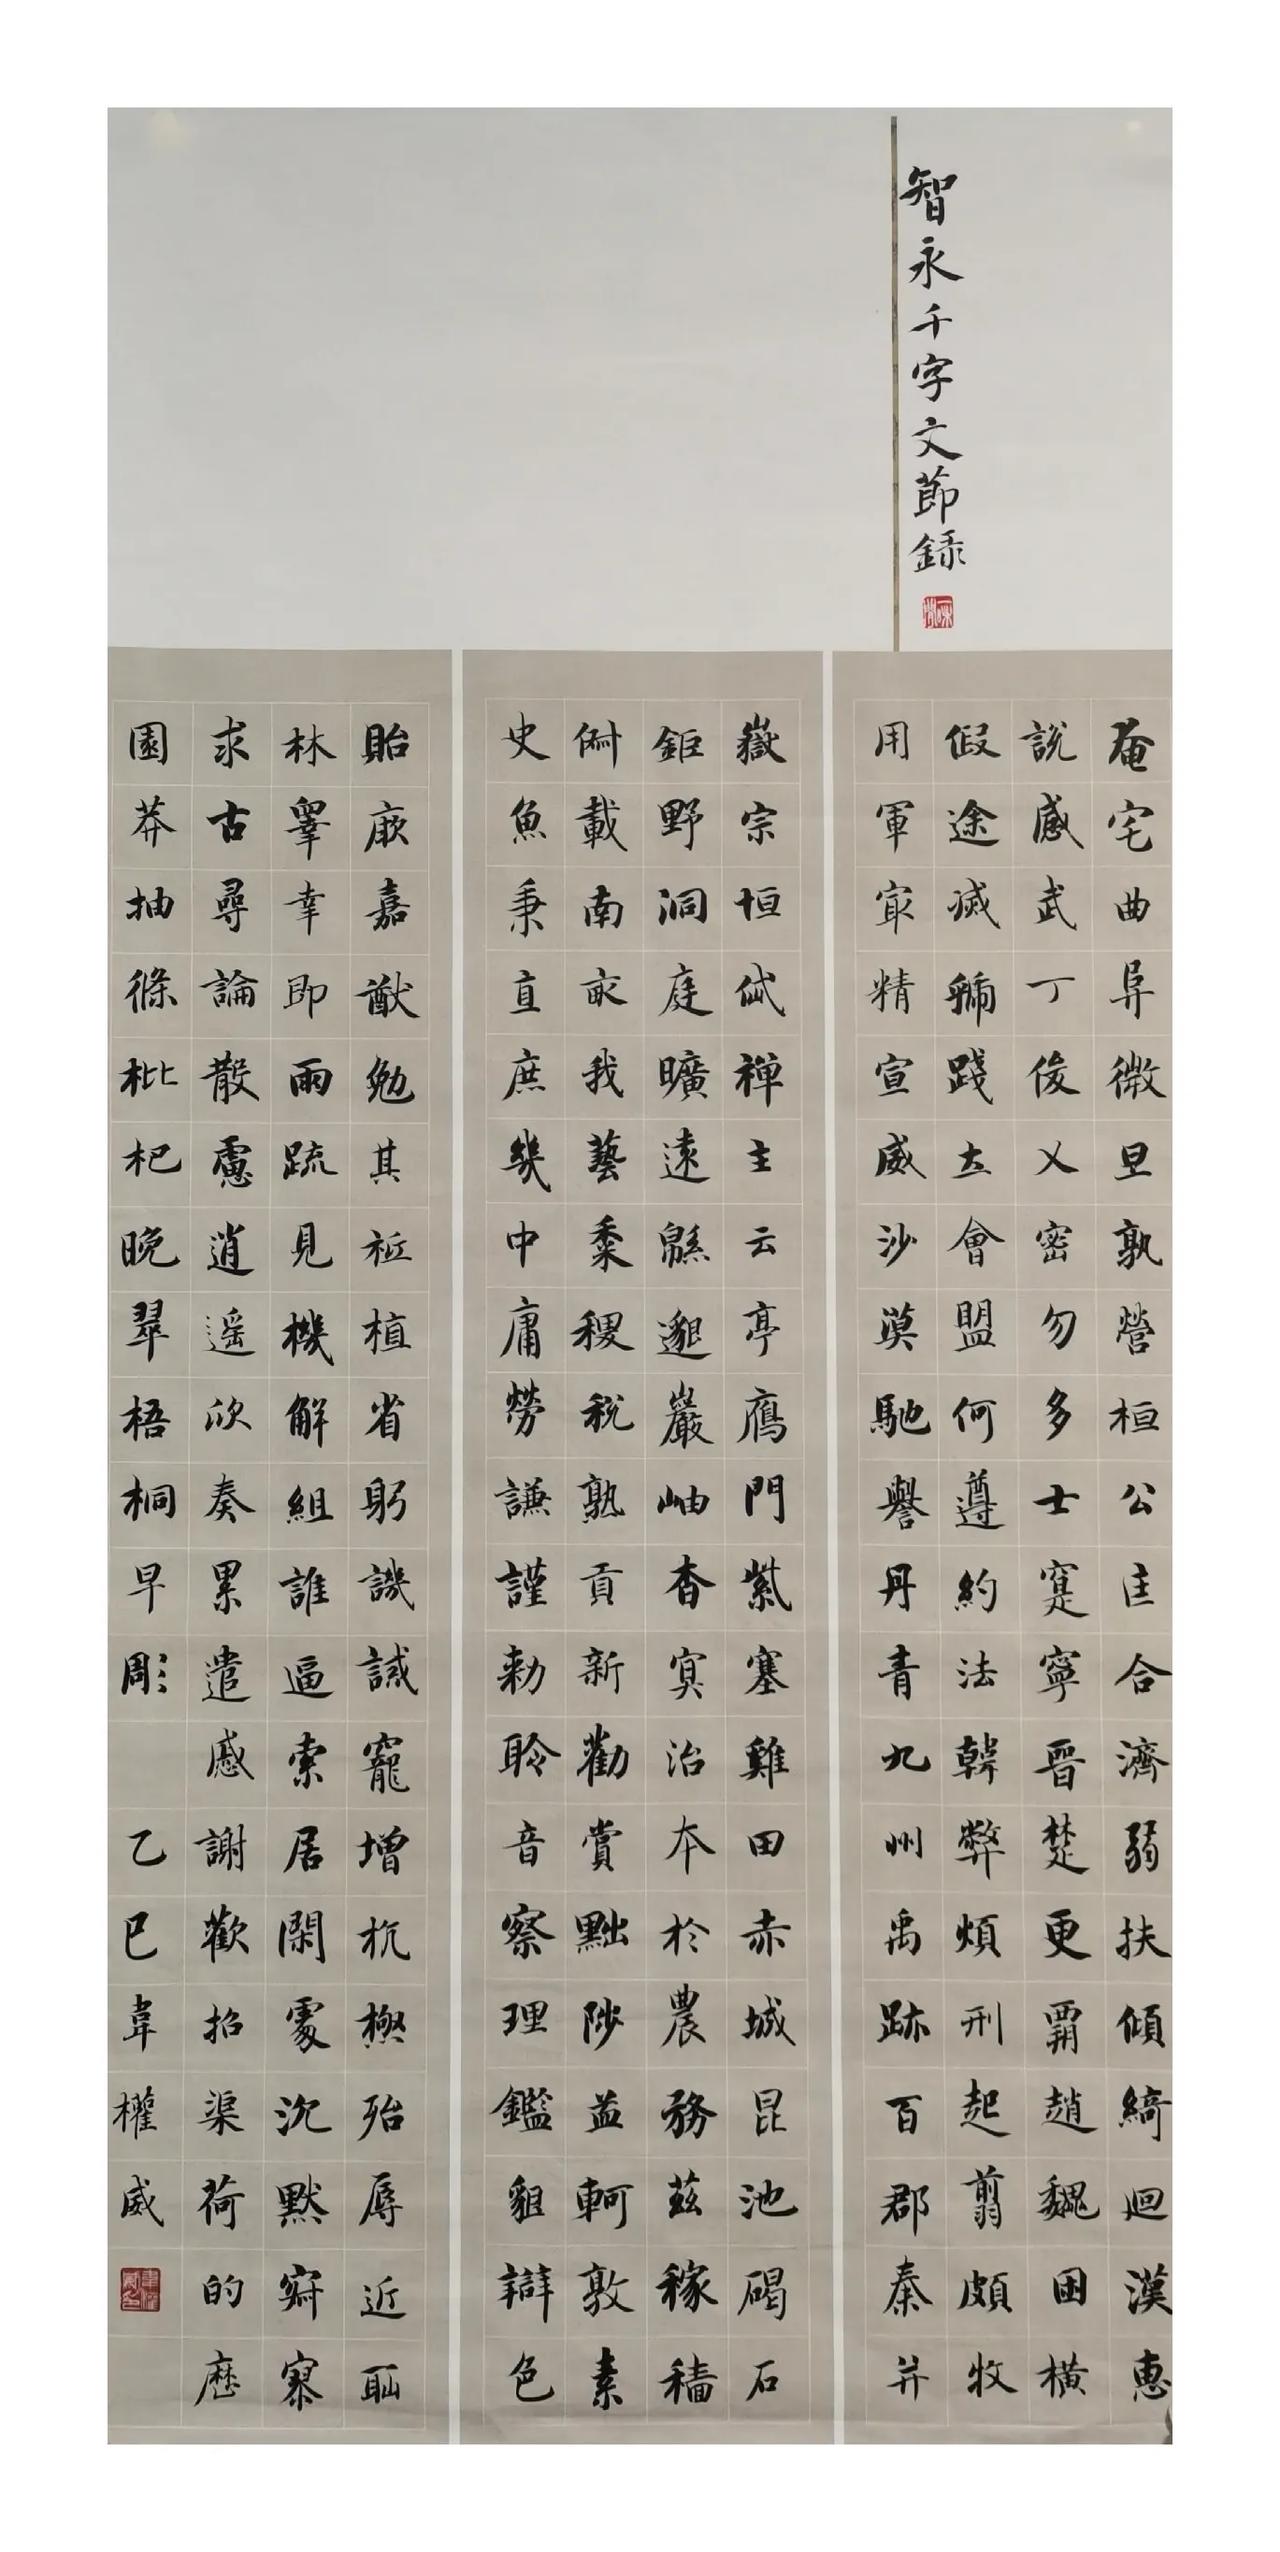 智永千字文節録
奄宅曲阜微旦孰營桓公匡合濟弱扶傾綺迴漢惠
說感武丁俊乂密勿多士寔寧晉楚更霸趙魏困橫
假途滅虢踐土會盟何遵約法韓弊煩刑起翦頗牧
用軍冣精宣威沙漠馳譽丹青九州禹跡百郡秦并
嶽宗恒岱禪主云亭鴈門紫塞雞田赤城昆池碣石
鉅野洞庭曠遠緜邈巖岫杳冥治本於農務茲稼穡
俶載南畝我藝黍稷税熟貢新勸賞黜陟孟軻敦素
史魚秉直庶幾中庸勞謙謹勑聆音察理鑑貌辯色
貽厥嘉猷勉其祗植省躬譏誡寵增抗極殆辱近耻
林睾幸即兩疏見機解組誰逼索居閑處沉默寂寥
求古尋論散慮逍遥欣奏累遣慼謝歡招渠荷的歷
園莽抽條枇杷晚翠梧桐早彫 乙巳韋權威